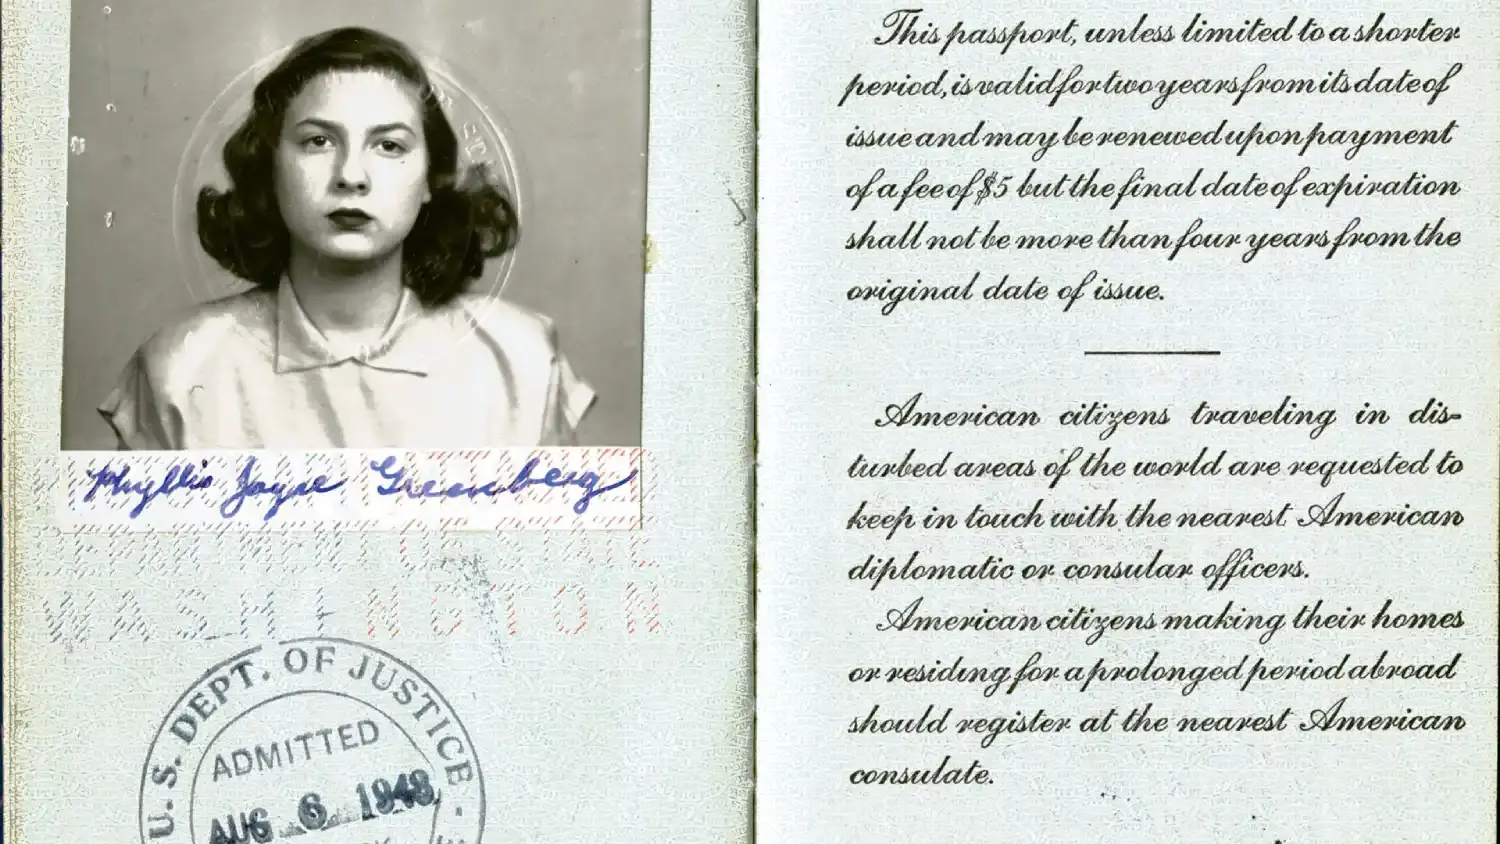 Phyllis Joyce Greenberg
DEPARTMENT OF STATE
WASHINGTON
U.S. DEPT. OF JUSTICE
ADMITTED
AUG 6 1948
This passport, unless limited to a shorter
period, is valid for two years from its date of
issue and may be renewed upon payment
of a fee of $5 but the final date of expiration
shall not be more than four years from the
original date of issue.
American citizens traveling in dis-
turbed areas of the world are requested to
keep in touch with the nearest American
diplomatic or consular officers.
American citizens making their homes
or residing for a prolonged period abroad
should register at the nearest American
consulate.